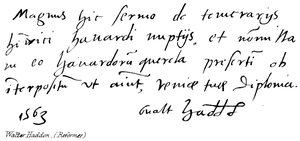 Magnus hic sermo de temerarijs
Henrici Havardi nuptijs, et
in eo Havardorum querela præsertim ob
interpositum ut aiunt, veniæ tuæ diploma.
1563 Gualt Haddo
Walter Haddon, (Reformer)